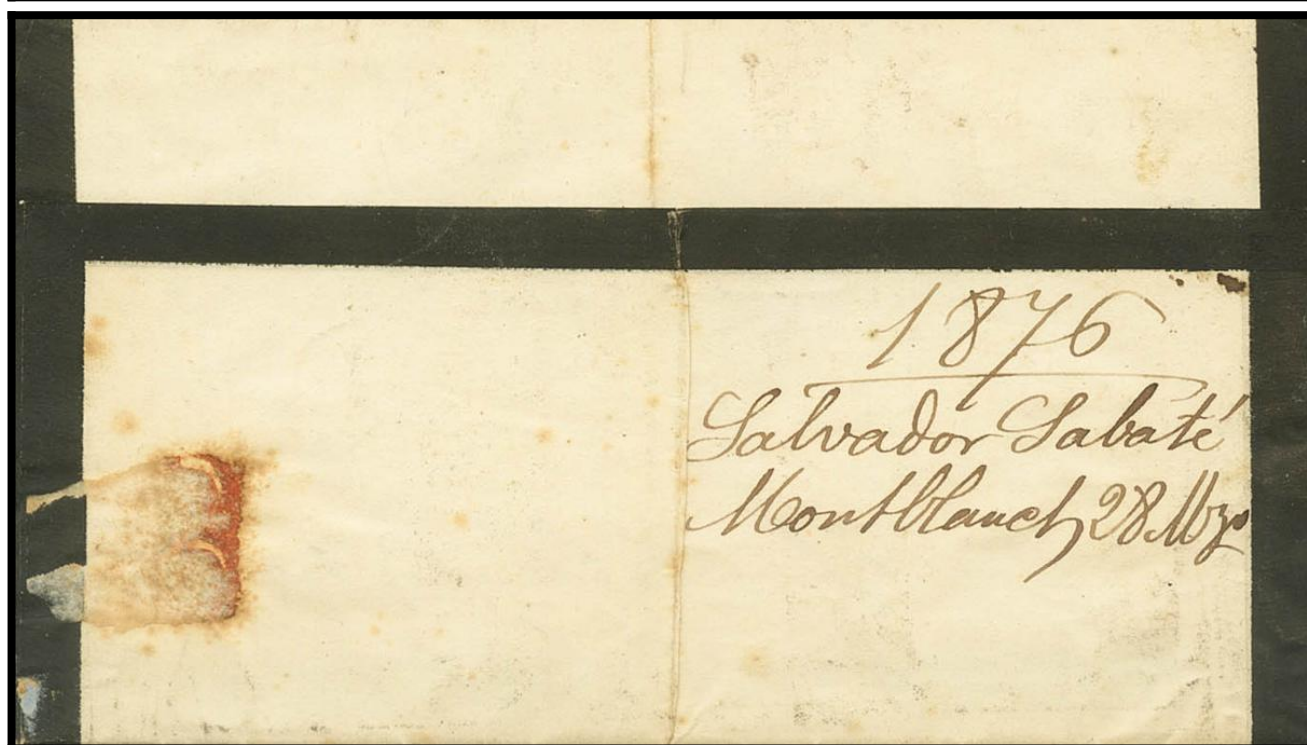 1876
Salvador Sabaté
Montblanch 28 Mzo